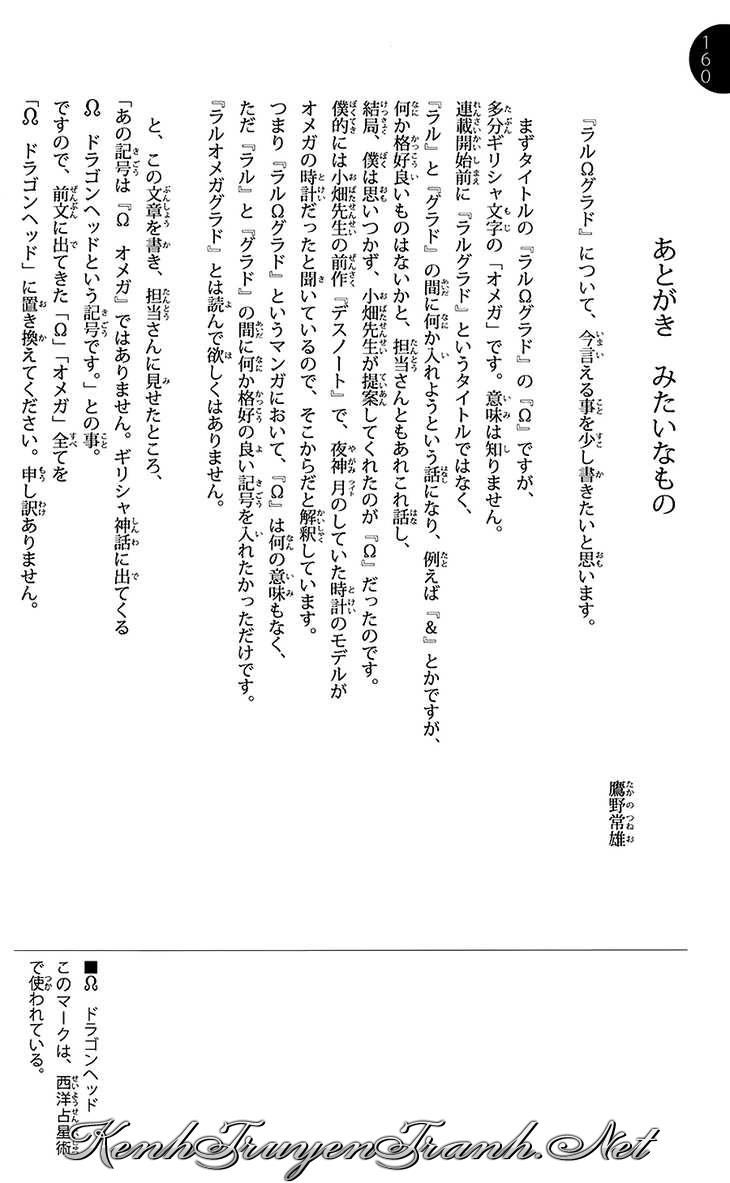 160
あとがき　みたいなもの
鷹野常雄
『ラルΩグラド』について、今言える事を少し書きたいと思います。
まずタイトルの『ラルΩグラド』の『Ω』ですが、
多分ギリシャ文字の「オメガ」です。意味は知りません。
連載開始前に『ラルグラド』というタイトルではなく、
『ラル』と『グラド』の間に何か入れようという話になり、例えば『&』とかですが、
何か格好良いものはないかと、担当さんともあれこれ話し、
結局、僕は思いつかず、小畑先生が提案してくれたのが『Ω』だったのです。
僕的には小畑先生の前作『デスノート』で、夜神月のしていた時計のモデルが
オメガの時計だったと聞いているので、そこからだと解釈しています。
つまり『ラルΩグラド』というマンガにおいて、『Ω』は何の意味もなく、
ただ『ラル』と『グラド』の間に何か格好の良い記号を入れたかっただけです。
『ラルオメガグラド』とは読んで欲しくはありません。
と、この文章を書き、担当さんに見せたところ、
「あの記号は『Ω　オメガ』ではありません。ギリシャ神話に出てくる
☊　ドラゴンヘッドという記号です。」との事。
ですので、前文に出てきた「Ω」「オメガ」全てを
「☊　ドラゴンヘッド」に置き換えてください。申し訳ありません。
■☊　ドラゴンヘッド
このマークは、西洋占星術
で使われている。
KenhTruyenTranh.Net